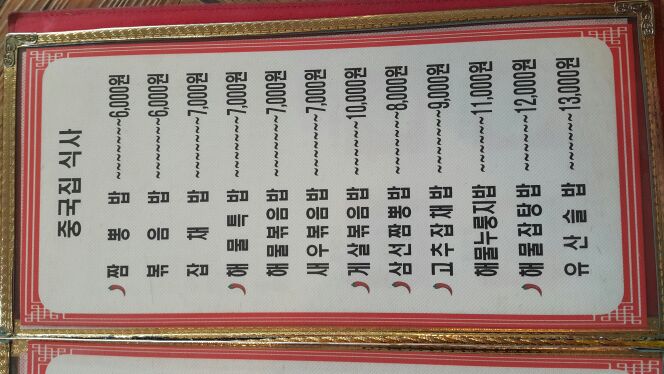 중국집 식사
짬뽕밥~~~~~~~6,000원
볶음밥~~~~~~~6,000원
잡채밥~~~~~~~7,000원
해물특밥~~~~~~~7,000원
해물볶음밥~~~~~~~7,000원
새우볶음밥~~~~~~~7,000원
게살볶음밥~~~~~~~10,000원
삼선짬뽕밥~~~~~~~8,000원
고추잡채밥~~~~~~~9,000원
해물누룽지밥~~~~~~~11,000원
해물잡탕밥~~~~~~~12,000원
유산슬밥~~~~~~~13,000원